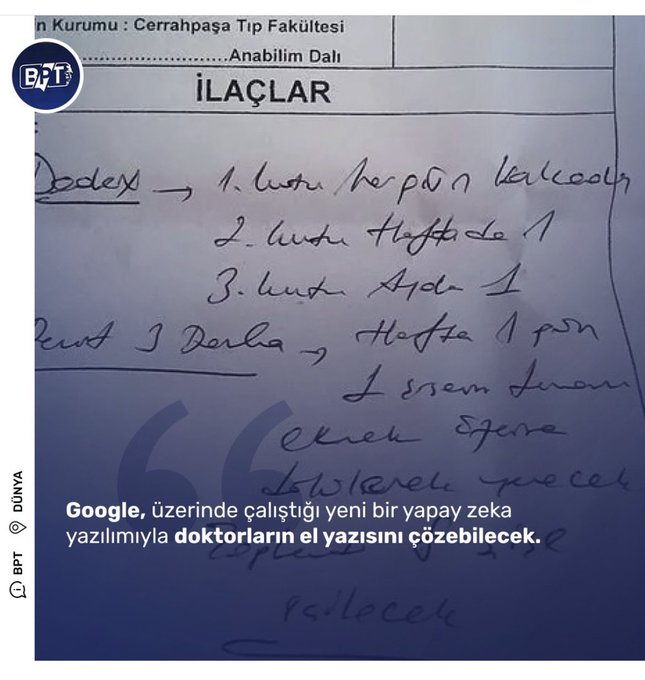 n Kurumu : Cerrahpaşa Tıp Fakültesi
........................Anabilim Dalı
BPT
İLAÇLAR
:
Dodex → 1. kutu her gün kalçadan
2. kutu Haftada 1
3. kutu Ayda 1
3 Damla → Hafta 1 gün
1
ekmek üzerine
damlatılarak yenecek
Google, üzerinde çalıştığı yeni bir yapay zeka
yazılımıyla doktorların el yazısını çözebilecek.
içilecek
BPT DÜNYA